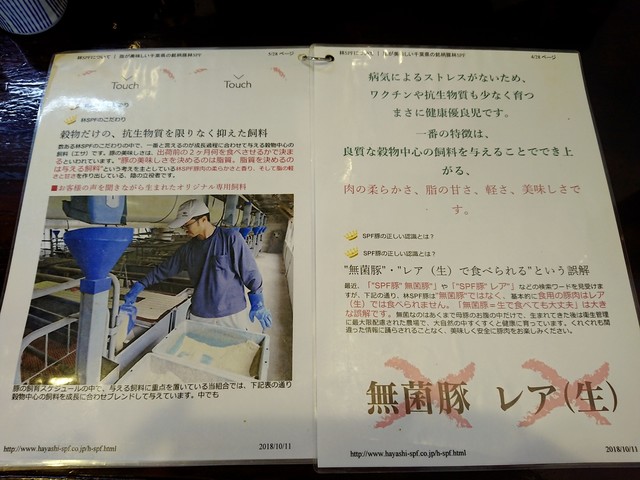 林SPFについて | 脂が美味しい千葉県の銘柄豚林SPF
3/28 ページ
Touch
Touch
林SPFのこだわり
穀物だけの、抗生物質を限りなく抑えた飼料
数ある林SPFのこだわりの中で、一番と言えるのが成長過程に合わせて与える穀物中心の
飼料（エサ）です。豚の美味しさは、出荷前の２ヶ月何を食べさせるかで決ま
るといわれています。"豚の美味しさを決めるのは脂質、脂質を決めるの
は与える飼料"という考えをまとしている林SPF豚肉の柔らかさと香り、そして脂の軽
さと甘さを作り出している、陰の立役者です。
■お客様の声を聞きながら生まれたオリジナル専用飼料
豚の飼育スケジュールの中で、与える飼料に重点を置いている当組合では、下記表の通り
穀物中心の飼料を成長に合わせブレンドして与えています。中でも
http://www.hayashi-spf.co.jp/h-spf.html
2018/10/11
林SPFについて | 脂が美味しい千葉県の銘柄豚林SPF
4/28 ページ
病気によるストレスがないため、
ワクチンや抗生物質も少なく育つ
まさに健康優良児です。
一番の特徴は、
良質な穀物中心の飼料を与えることででき上
がる、
肉の柔らかさ、脂の甘さ、軽さ、美味しさで
す。
SPF豚の正しい認識とは？
SPF豚の正しい認識とは？
"無菌豚"・"レア（生）で食べられる"という誤解
最近、「"SPF豚 無菌豚"」や「"SPF豚 レア"」などの検索ワードを見受けま
すが、下記の通り、林SPF豚は"無菌豚"ではなく、基本的に食用の豚肉はレア
（生）では食べられません。「無菌豚＝生で食べても大丈夫」は大き
な誤解です。無菌なのはあくまで母豚のお腹の中だけで、生まれてきた後は衛生管理
に最大限配慮された農場で、大自然の中すくすくと健康に育っています。くれぐれも間
違った情報に踊らされることなく、美味しく安全に豚肉をお楽しみください。
無菌豚 レア（生）
http://www.hayashi-spf.co.jp/h-spf.html
2018/10/11